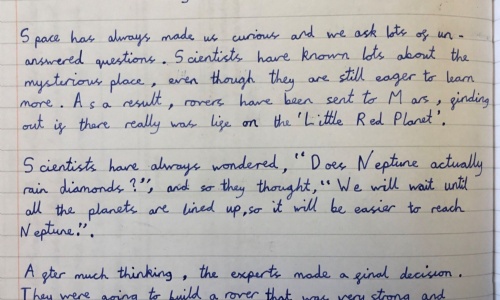 Space has always made us curious and we ask lots of un-
answered questions. Scientists have known lots about the
mysterious place, even though they are still eager to learn
more. As a result, rovers have been sent to Mars, finding
out if there really was life on the 'Little Red Planet'.
Scientists have always wondered, "Does Neptune actually
rain diamonds?", and so they thought, "We will wait until
all the planets are lined up, so it will be easier to reach
Neptune.".
After much thinking, the experts made a final decision.
They were going to build a rover that was very strong and